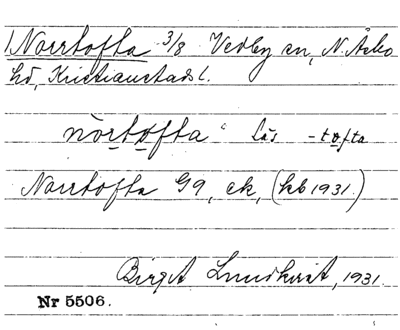 1 Norrtofta 3/8 Vedby sn, N. Åsbo
hd, Kristianstads l.
nòrtofta läs -tofta
Norrtofta G9, ek, (kb 1931.)
Birgit Lundkvist, 1931.
Nr 5506.